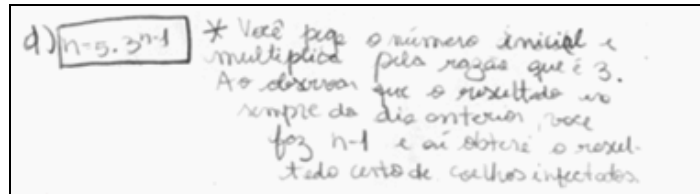 d) n=5.3ⁿ⁻¹ * Você pega o número inicial e
multiplica pela razão que é 3.
Ao observar que o resultado
sempre do dia anterior, você
faz n-1 e aí obterá o resul-
tado certo de coelhos infectados.